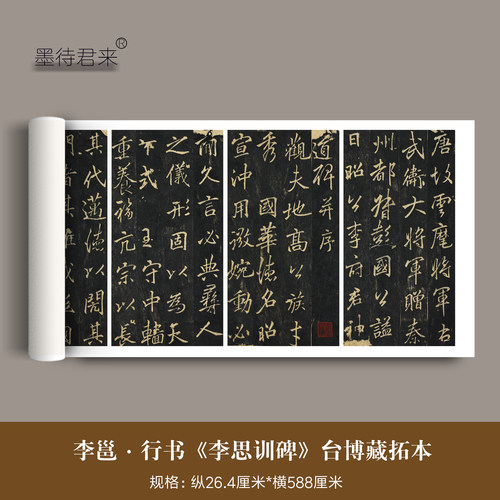 墨待君来®
唐故雲麾將軍右
武衛大將軍贈秦
州都督彭國公謚
曰昭公李府君神
道碑并序
觀夫地高公族才
秀國華德名昭
宣沖用微婉動必
簡久言必典彝人
之儀形固以為天
下式玉守中轄
重養福亢宗以長
其代邁德以閎其
門者其惟
李邕·行书《李思训碑》台博藏拓本
规格:纵26.4厘米*横588厘米